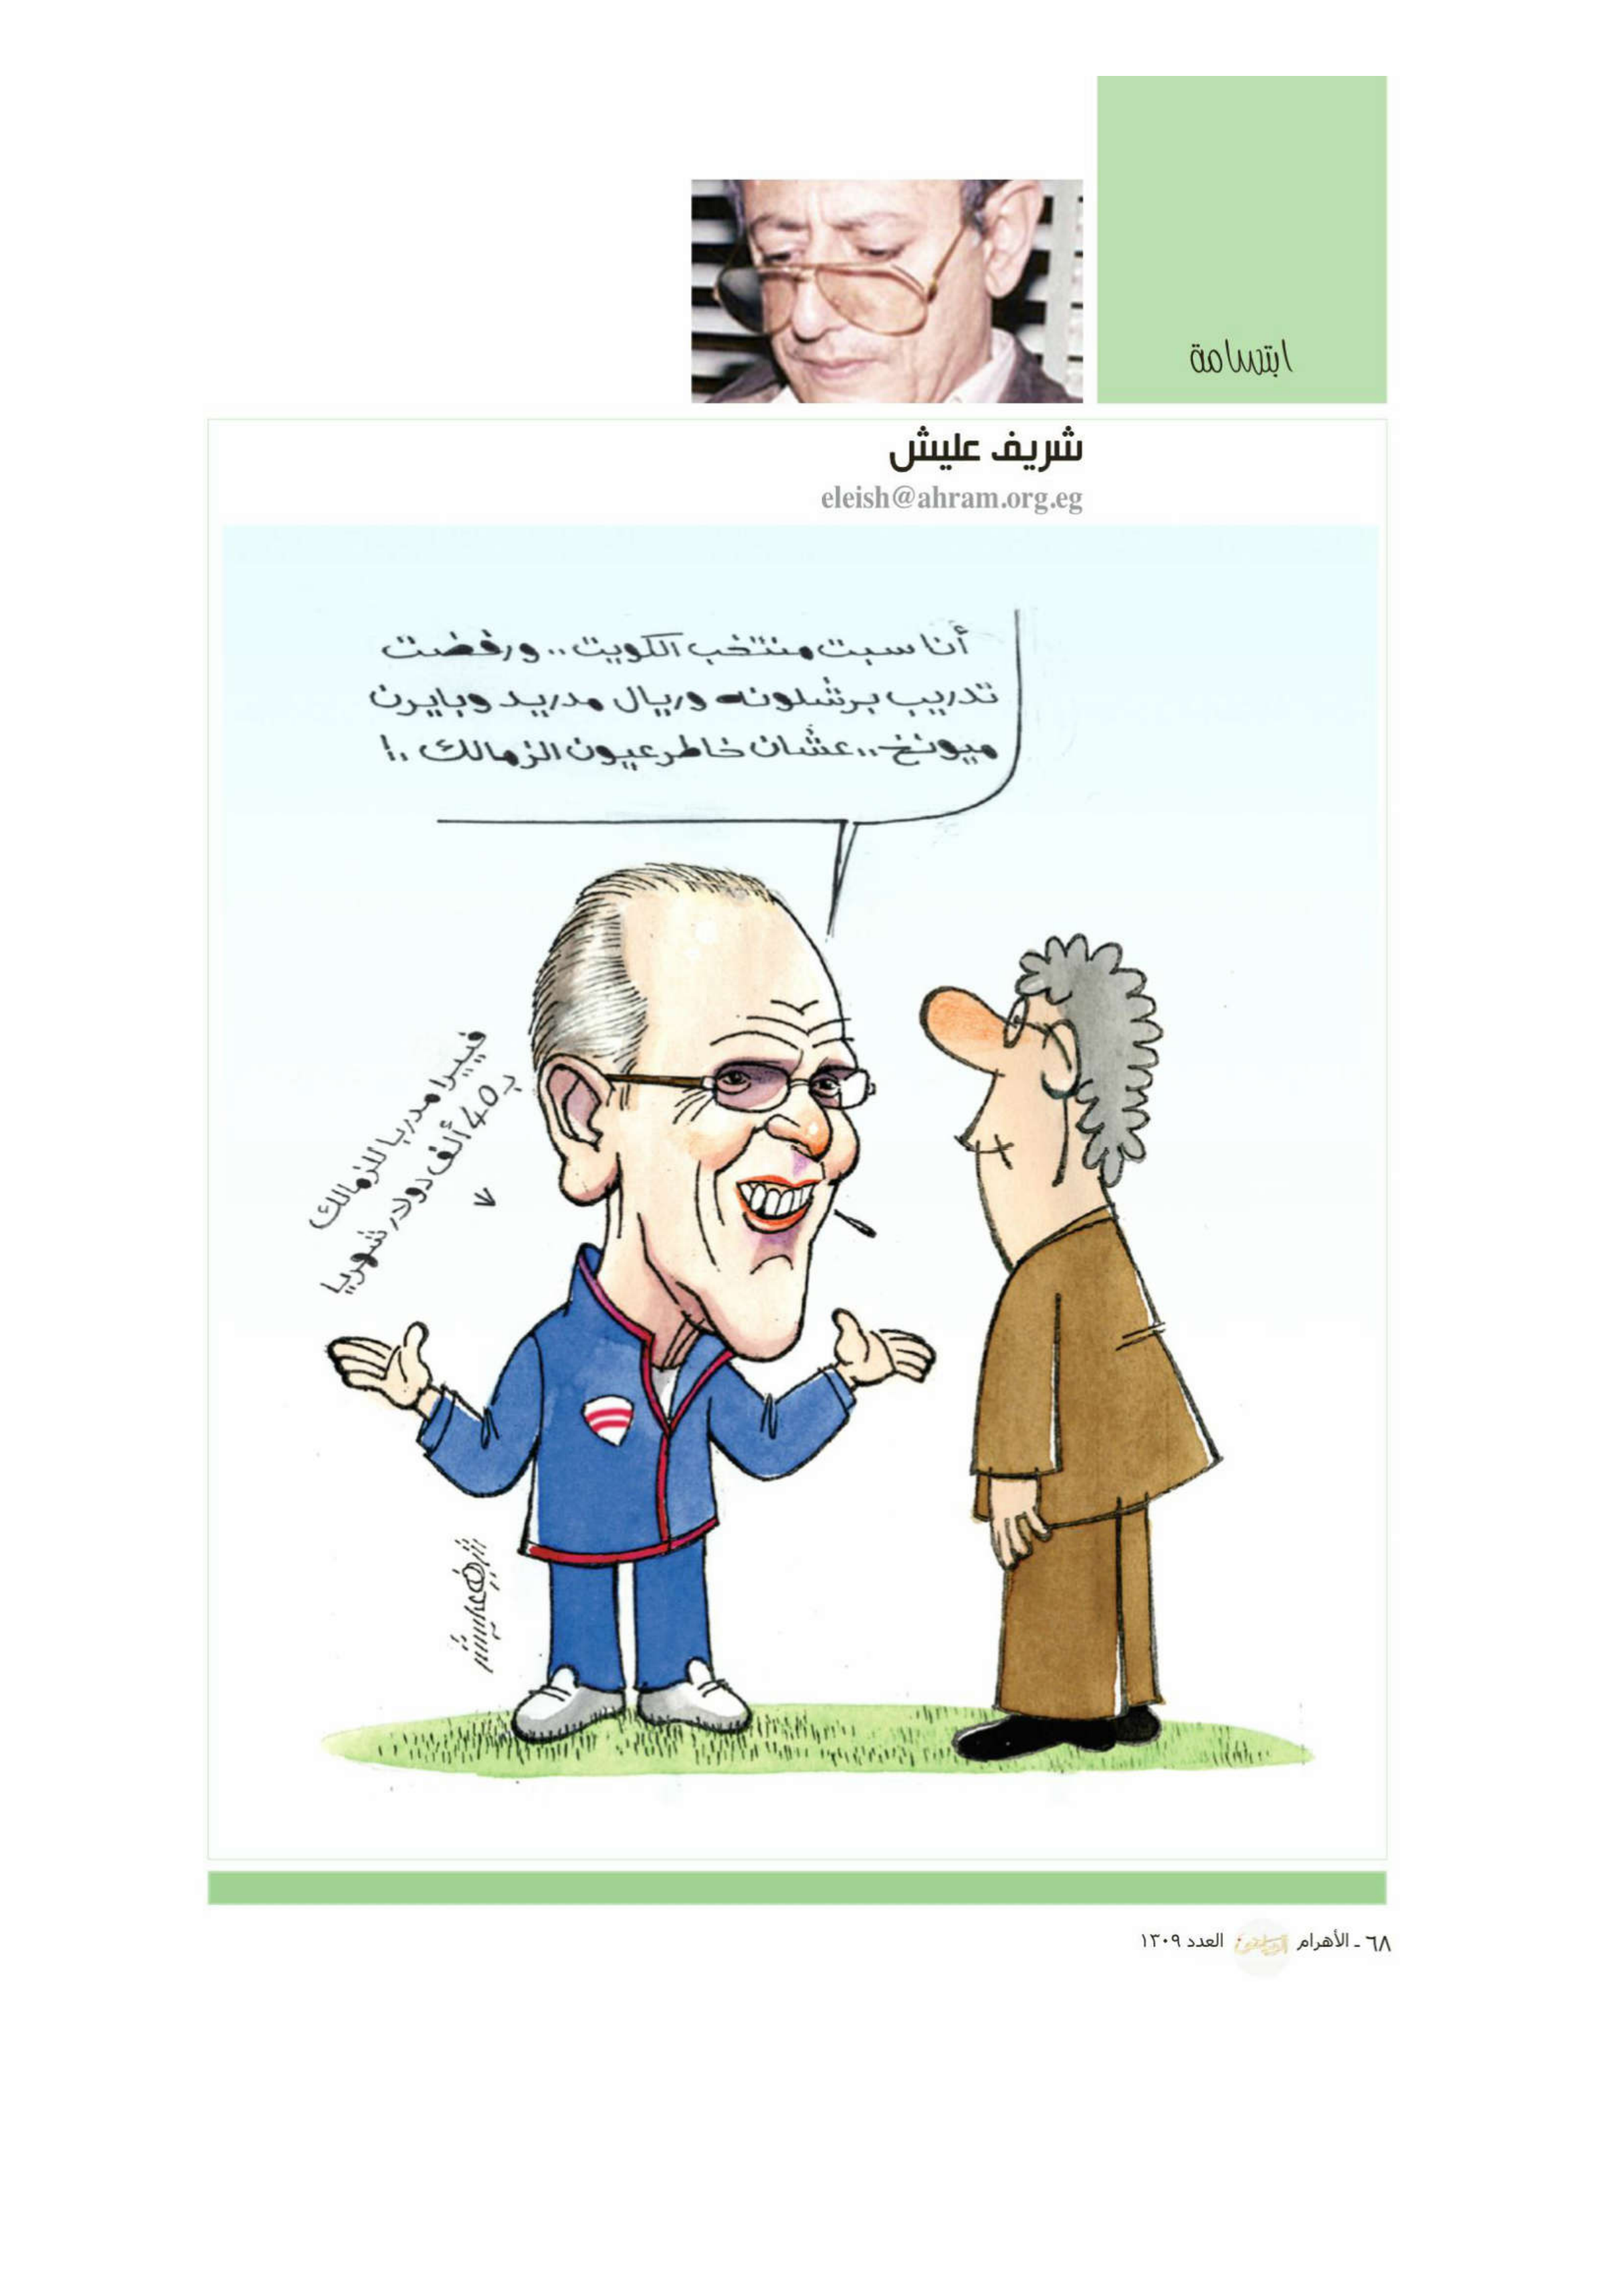 ابتسامة
شريف عليش
eleish@ahram.org.eg
أنا سبت منتخب الكويت.. ورفضت
تدريب برشلونه وريال مدريد وبايرن
ميونخ.. عشان خاطر عيون الزمالك .!
فييرا مدربا للزمالك
بـ 40 ألف دولار شهريا
شريف عليش
٦٨ ـ الأهرام الرياضى العدد ١٣٠٩